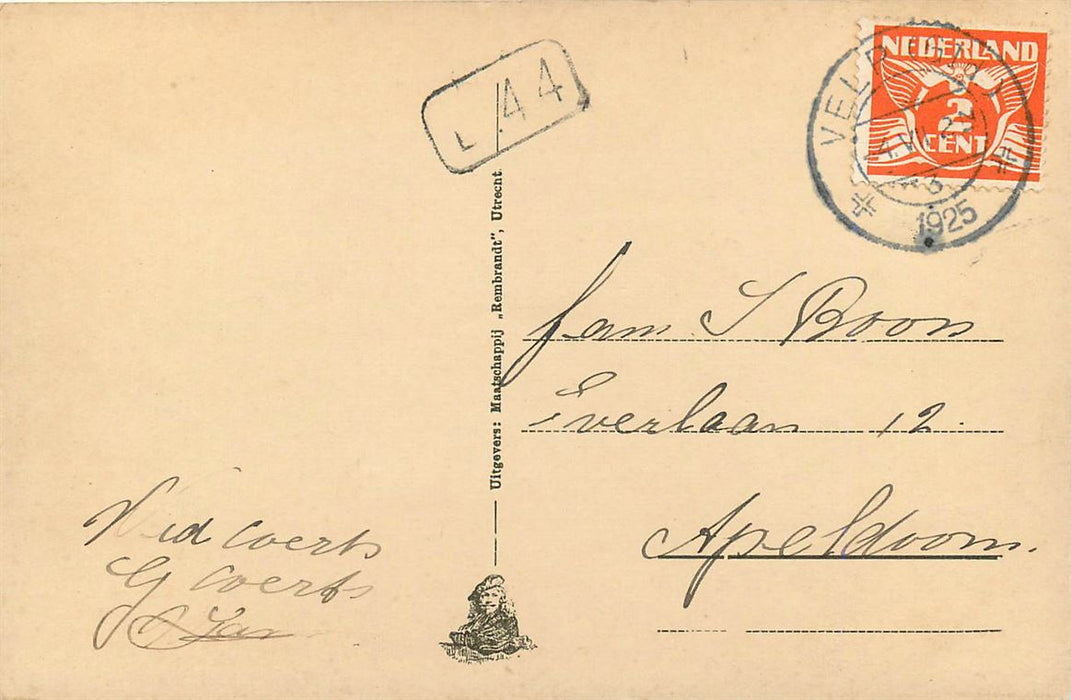 L 44
NEDERLAND
2
CENT
VELP (GLD)
1925
Uitgevers: Maatschappij „Rembrandt”, Utrecht.
fam S Boon
Everlaan 12.
Apeldoorn.
Wed Coerts
G Coerts